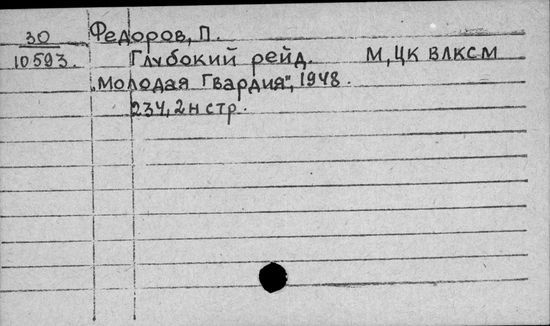 30 Федоров, П.
10593. Глубокий рейд. М, ЦК ВЛКСМ
„Молодая Гвардия", 1948.
234, 2 н стр.